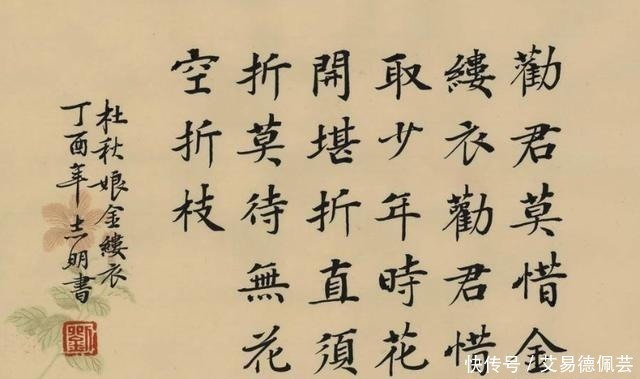 勸君莫惜金
縷衣勸君惜
取少年時花
開堪折直須
折莫待無花
空折枝
杜秋娘金縷衣
丁酉年志明書
快传号/艾易德佩芸